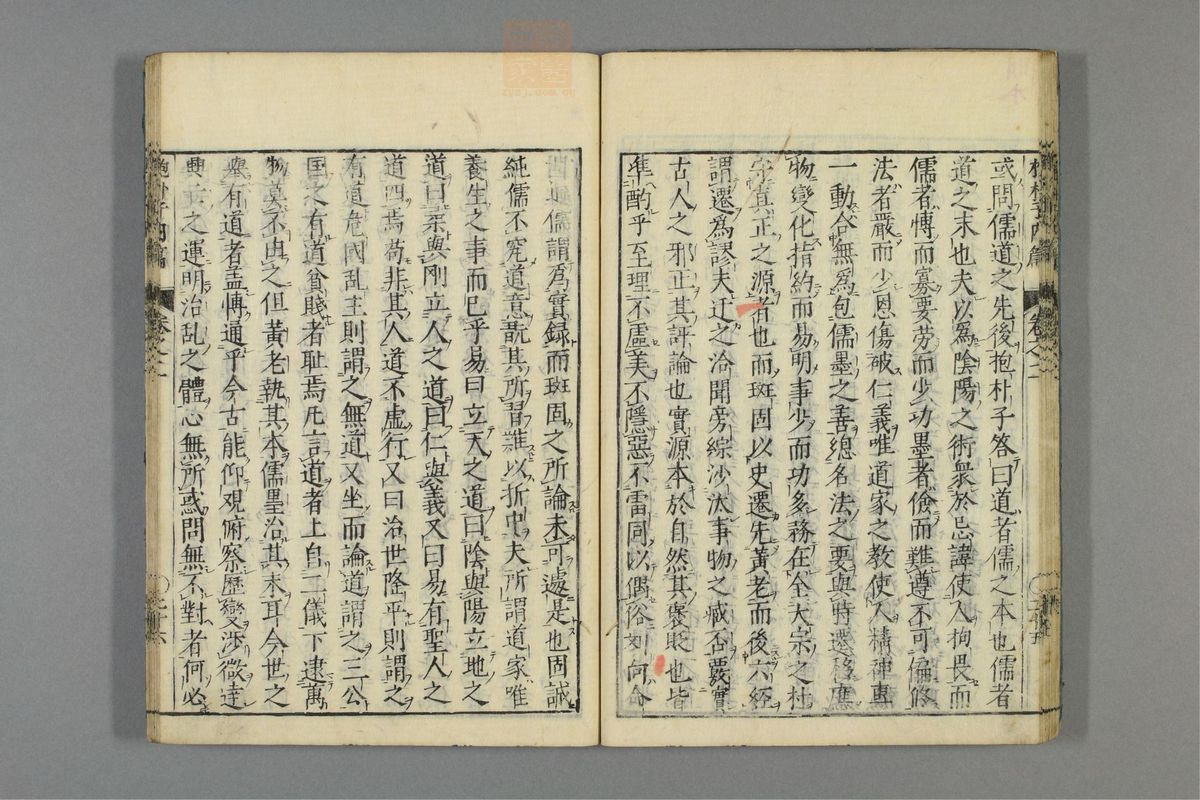 或問儒道之先後抱朴子答曰道者儒之本也儒者
道之末也夫以爲陰陽之術衆於忌諱使人拘畏而
儒者博而寡要勞而少功墨者儉而難遵不可偏修
法者嚴而少恩傷破仁義唯道家之教使人精神專
一動合無爲包儒墨之善總名法之要與時遷移應
物變化指約而易明事少而功多務在全大宗之朴
守真正之源者也而班固以史遷先黃老而後六經
謂遷爲謬夫迁之洽聞旁綜沙汰事物之臧否覈實
古人之邪正其評論也實源本於自然其褒貶也皆
準酌乎至理不虛美不隱惡不雷同以偶俗刘向命
世通儒謂爲實録而班固之所論未可處是也固誠
純儒不究道意翫其所習難以折中夫所謂道家唯
養生之事而已乎易曰立天之道曰陰與陽立地之
道曰柔與剛立人之道曰仁與義又曰易有聖人之
道四焉苟非其人道不虛行又曰治世隆平則謂之
有道危國乱主則謂之無道又坐而論道謂之三公
国之有道貧賤者耻焉凢言道者上自二儀下逮萬
物莫不由之但黃老執其本儒墨治其末耳今世之
舉有道者盖博通乎今古能仰观俯察歷變涉微達
興亡之運明治乱之體心無所惑問無不對者何必
抱朴子内篇 卷之二